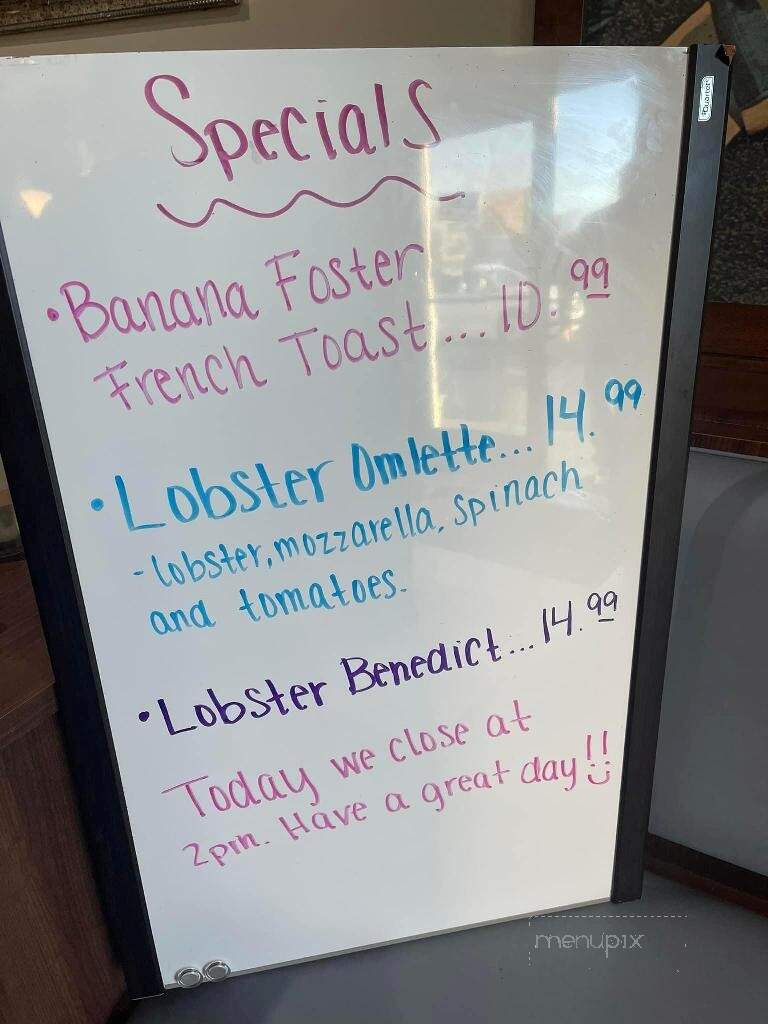 Specials
• Banana Foster
French Toast... 10.99
• Lobster Omlette... 14.99
- lobster, mozzarella, spinach
and tomatoes.
• Lobster Benedict... 14.99
Today we close at
2pm. Have a great day!!
Quartet
menupix